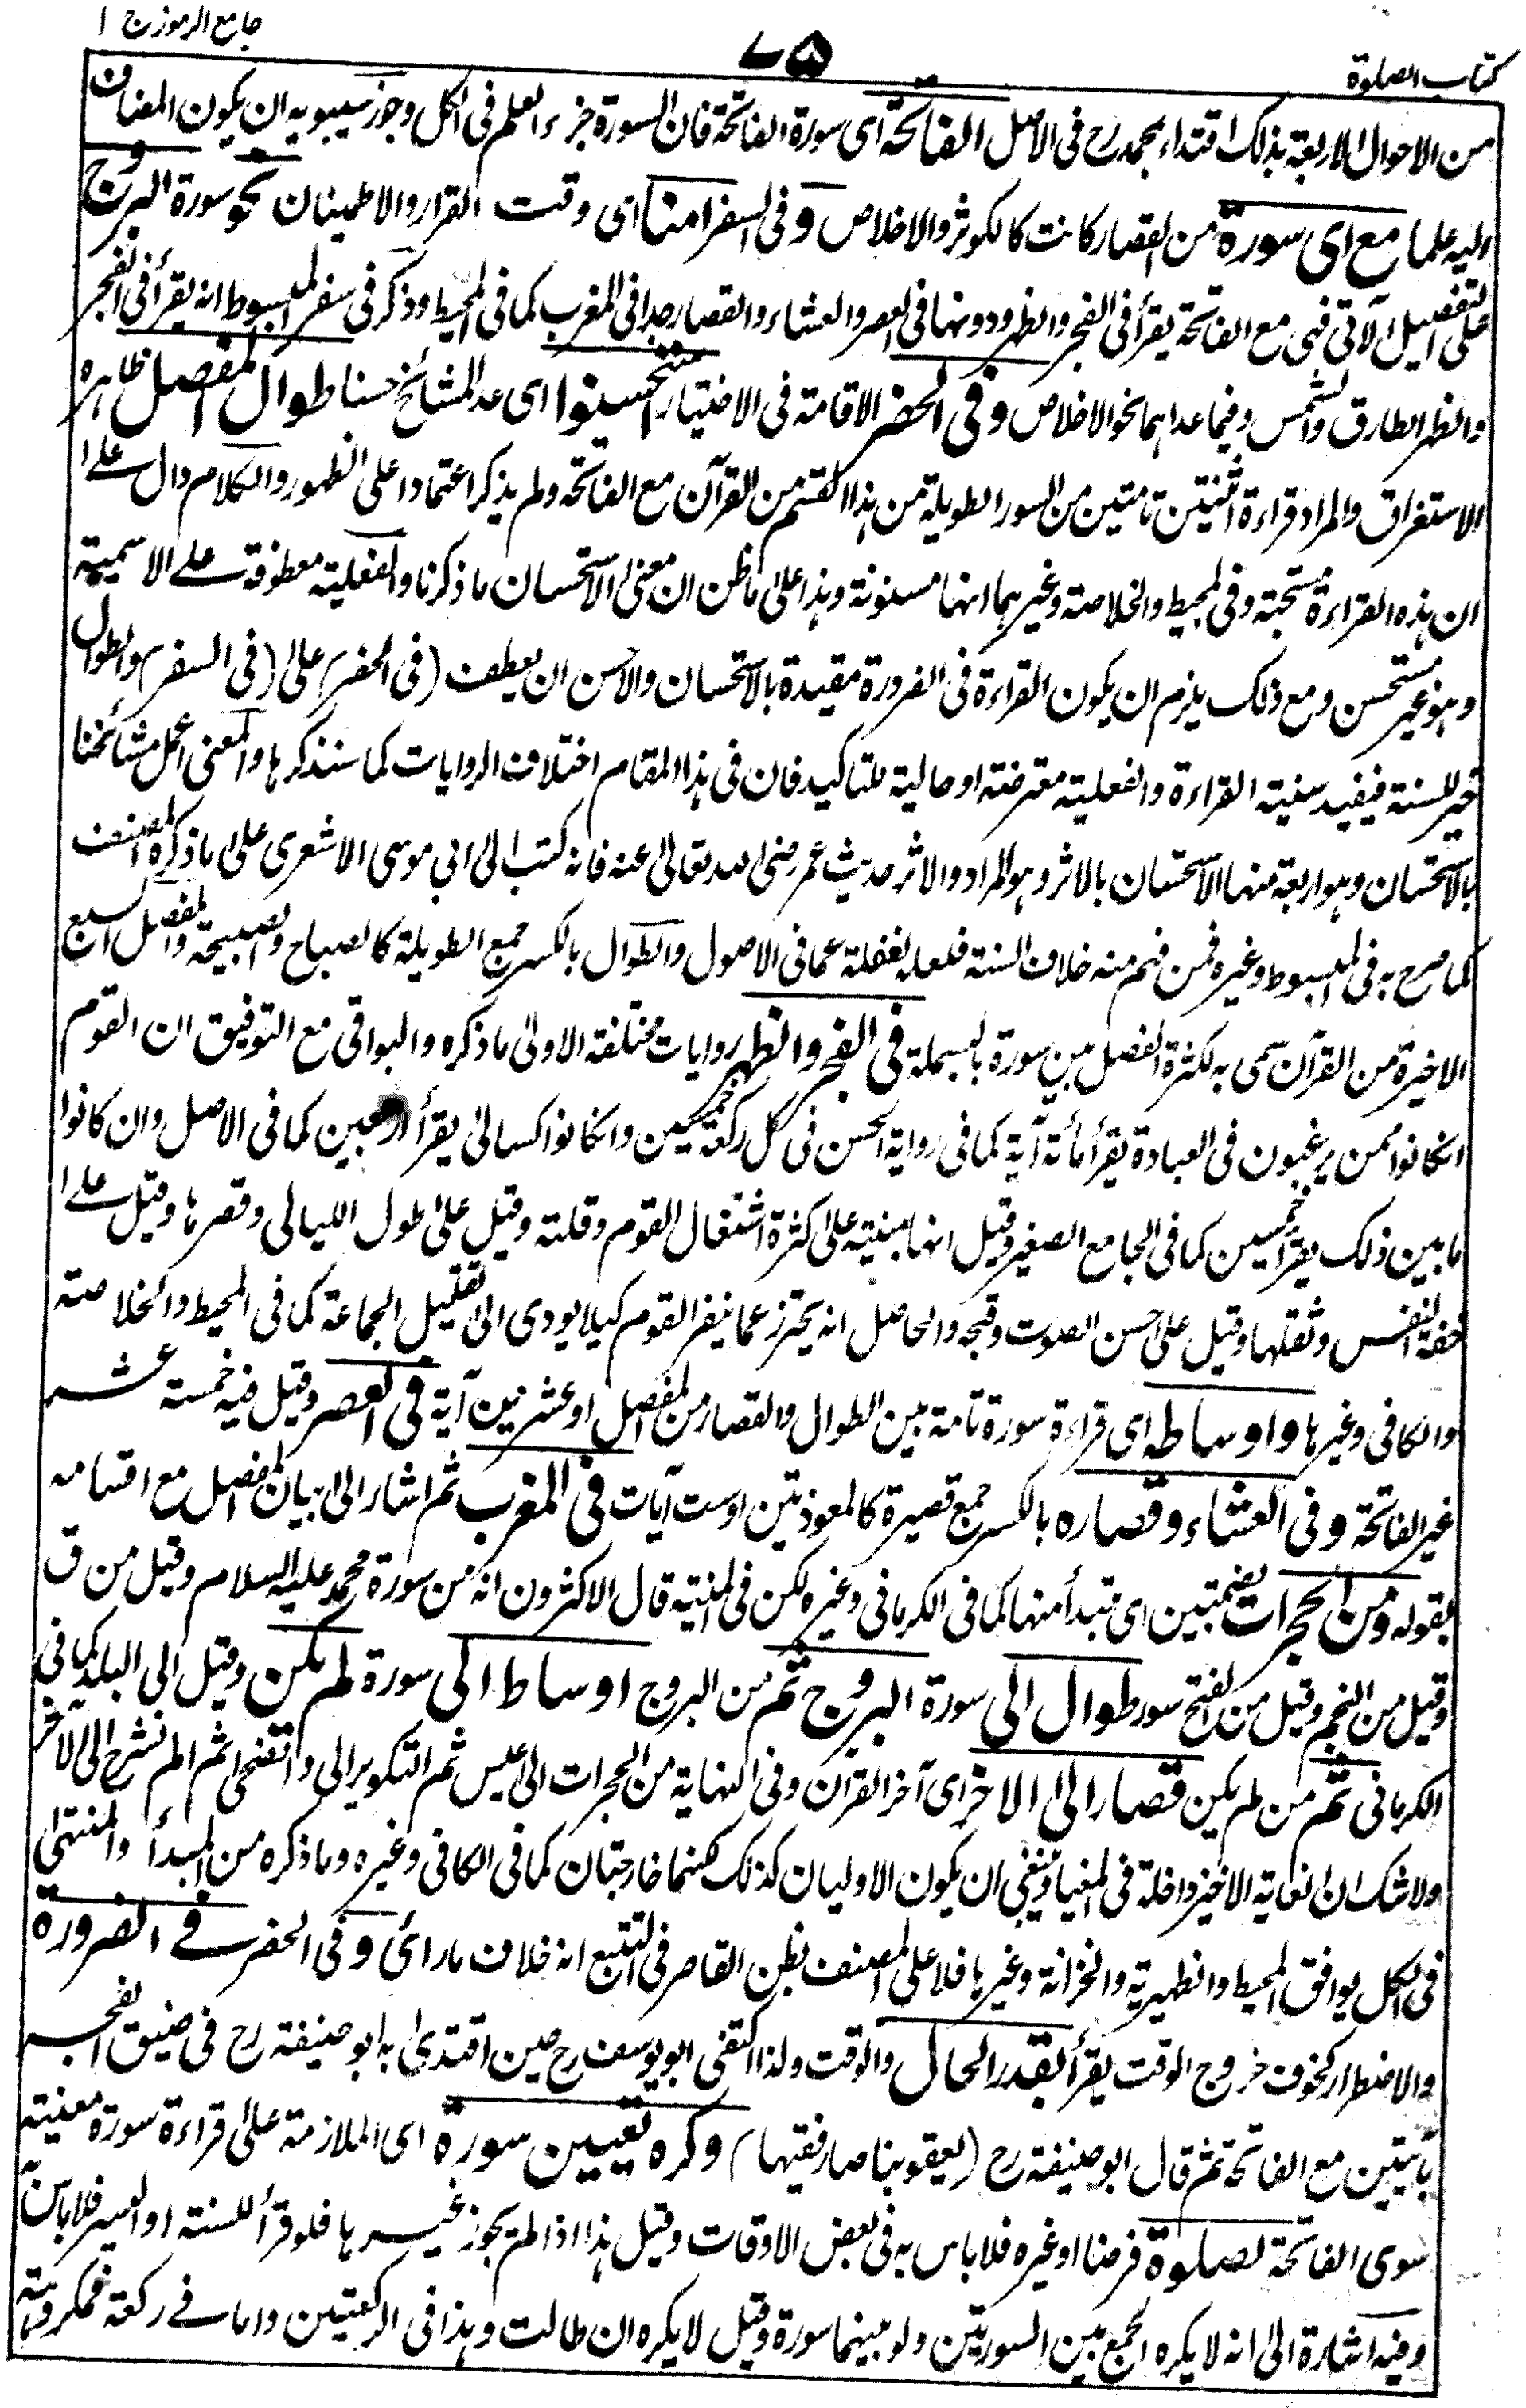 جامع الرموز ج ا
۷۵
كتاب الصلوة
من الاحوال الاربعة بذلك اقتداء بمحمد رح فى الاصل الفاتحة اى سورة الفاتحة فان السورة جزء العلم فى الكل وجوز سيبويه ان يكون المضاف
اليه علما مع اى سورة من القصار كانت كالكوثر والاخلاص وفى السفر امنا اى وقت القرار والاطمينان نحو سورة البروج
على التفصيل الآتى فهى مع الفاتحة يقرأ فى الفجر والظهر ودونها فى العصر والعشاء والقصار جدا فى المغرب كما فى المحيط وذكر فى سفر المبسوط انه يقرأ فى الفجر
والظهر الطارق والشمس وفيما عداهما نحو الاخلاص وفى الحضر الاقامة فى الاختيار استحسنوا اى عد المشائخ حسنا طوال المفصل ظاهره
الاستغراق والمراد قراءة اثنتين تامتين من السور الطويلة من هذا القسم من القرآن مع الفاتحة ولم يذكر اعتمادا على الظهور والكلام دال على
ان هذه القراءة مستحبة وفى المحيط والخلاصة وغيرهما انها مسنونة وهذا على ما ظن ان معنى الاستحسان ما ذكرنا والفعلية معطوفة على الاسمية
وهو غير مستحسن ومع ذلك يلزم ان يكون القراءة فى الضرورة مقيدة بالاستحسان والاحسن ان يعطف (فى الحضر) على (فى السفر) والطوال
خبر للسنة فيفيد سنية القراءة والفعلية معترضة او حالية للتاكيد فان فى هذا المقام اختلاف الروايات كما سنذكرها والمعنى اعمل مشائخنا
بالاستحسان وهو اربعة منها الاستحسان بالاثر وهو المراد والاثر حديث عمر رضى الله تعالى عنه فانه كتب الى ابي موسى الاشعرى على ما ذكره المصنف
كما صرح به فى المبسوط وغيره فمن فهم منه خلاف السنة فلعله لغفلة عما فى الاصول والطوال بالكسر جمع الطويلة كالصباح والصبيحة والمفصل السبع
الاخيرة من القرآن سمى به لكثرة الفصل بين سورة بالبسملة فى الفجر والظهر روايات مختلفة الاولى ما ذكره والبواقى مع التوفيق ان القوم
انكانوا ممن يرغبون فى العبادة يقرأ مائة آية كما فى رواية الحسن فى كل ركعة خمسين وانكانوا كسالى يقرأ اربعين كما فى الاصل وان كانوا
ما بين ذلك يقرأ خمسين كما فى الجامع الصغير وقيل انها مبنية على كثرة اشتغال القوم وقلته وقيل على طول الليالى وقصرها وقيل على
خفة النفس وثقلها وقيل على حسن الصوت وقبحه والحاصل انه يحترز عما ينفر القوم كيلا يودى الى تقليل الجماعة كما فى المحيط والخلاصة
والكافى وغيرها واوساطه اى قراءة سورة تامة بين الطوال والقصار من المفصل او عشرين آية فى العصر وقيل فيه خمسة عشر
غير الفاتحة وفى العشاء وقصاره بالكسر جمع قصيرة كالمعوذتين او ست آيات فى المغرب ثم اشار الى بيان المفصل مع اقسامه
بقوله ومن الحجرات بضمتين اى مبتدأ منها كما فى الكرمانى وغيره لكن فى المنية قال الاكثرون انه من سورة محمد عليه السلام وقيل من ق
وقيل من النجم وقيل من الفتح سور طوال الى سورة البروج ثم من البروج اوساط الى سورة لم يكن وقيل الى البلد كما فى
الكرمانى ثم من لم يكن قصار الى الاخر اى آخر القرآن وفى النهاية من الحجرات الى عبس ثم التكوير الى والضحى ثم الم نشرح الى الآخر
ولا شك ان الغاية الاخير داخلة فى المغيا فينبغى ان يكون الاوليان كذلك لكنهما خارجتان كما فى الكافى وغيره وما ذكره من المبدأ والمنتهى
فى الكل يوافق المحيط والظهيرية والخزانة وغيرها فلا على المصنف بظن القاصر فى التتبع انه خلاف ما رائ وفى الحضر فى الضرورة
والاضطرار كخوف خروج الوقت يقرأ بقدر الحال والوقت ولذا اكتفى ابو يوسف رح حين اقتدى به ابو حنيفة رح فى ضيق الفجر
بآيتين مع الفاتحة ثم قال ابو حنيفة رح (يعقوبنا صار فقيها) وكره تعيين سورة اى الملازمة على قراءة سورة معينة
سوى الفاتحة لصلوة فرضا او غيره فلا باس به فى بعض الاوقات وقيل هذا اذا لم يجوز غيرها فلو قرأ للسنة او اليسر فلا باس
وفيه اشارة الى انه لا يكره الجمع بين السورتين ولو بينهما سورة وقيل لا يكره ان طالت وهذا فى الركعتين واما فى ركعة فمكروهة